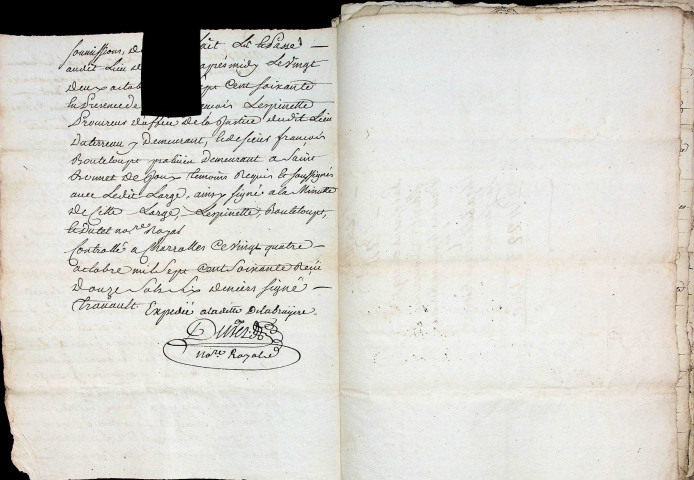 soumissions, de fait Lû et Passé —
audit Lieu de aprés midy Le vingt
deux octobre sept Cent soixante
En Presence de Lespinette
Procureur d'office de la Justice dudit Lieu
y Demeurant, et de sieur françois
Bouteloupt praticien demeurant a Saint
Bonnet de Joux temoins Requis et soussignés
avec Ledit Large, ainsy signé a la Minutte
de Cette Large, Lespinette, Bouteloupt,
et Dutet no.re Royal
Controllé a Charrolles Ce vingt quatre —
octobre mil Sept Cent Soixante Reçû
Douze Sols Six deniers signé —
Expediée a laditte Delabruyere.
Dutet
no.re Royal